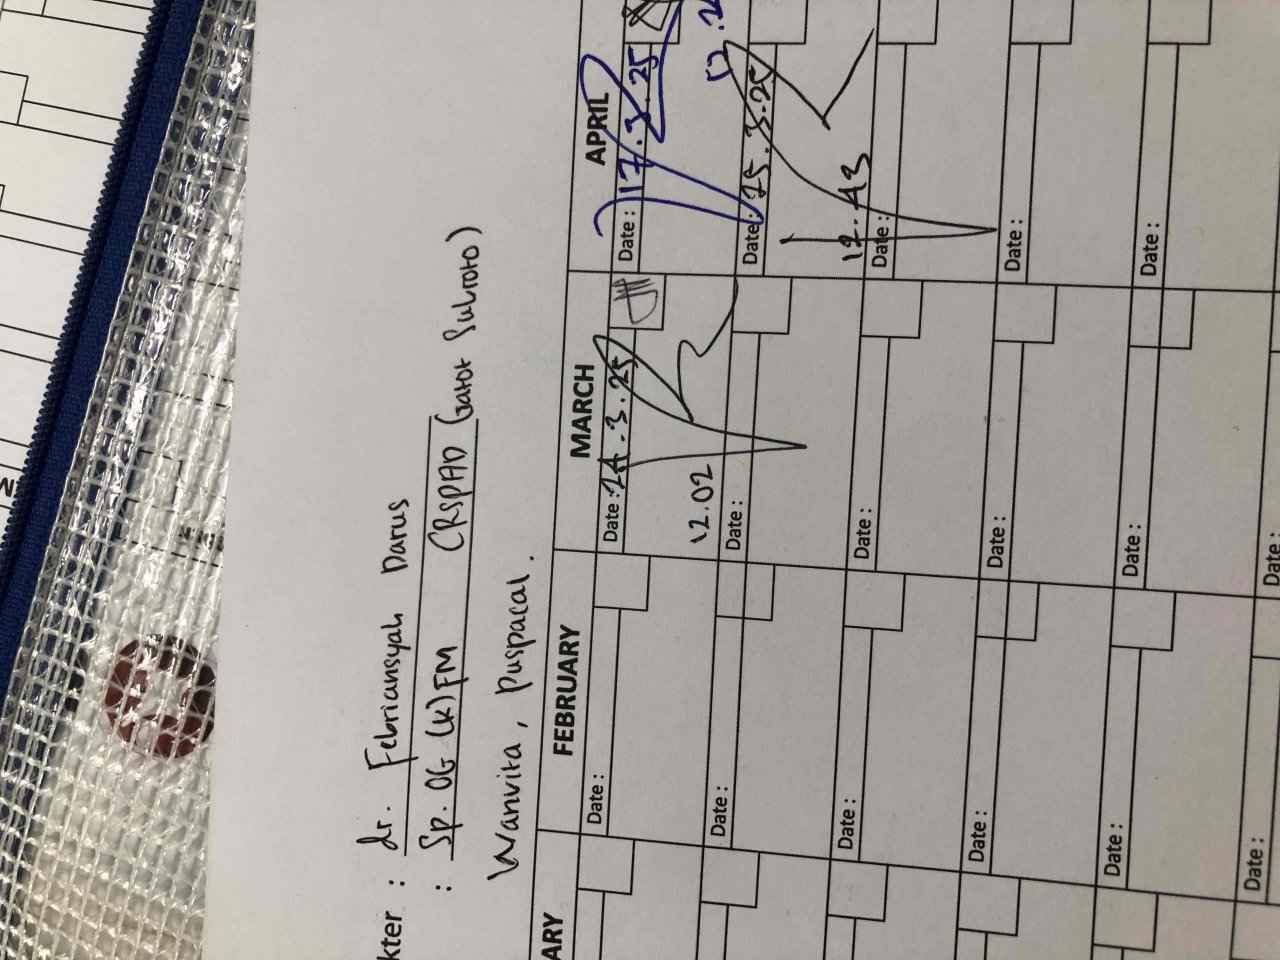 kter : dr. Febriansyah Darus
: Sp. OG (K) FM (RSPAD Gatot Subroto)
Wanvita, Puspacal.
ARY FEBRUARY MARCH APRIL
Date : Date : 24.3.25 Date : 17.3.25
12.02
Date : Date : Date : 25.3.25
12.43
Date : Date : Date :
Date : Date : Date :
Date : Date : Date :
Date : Date :